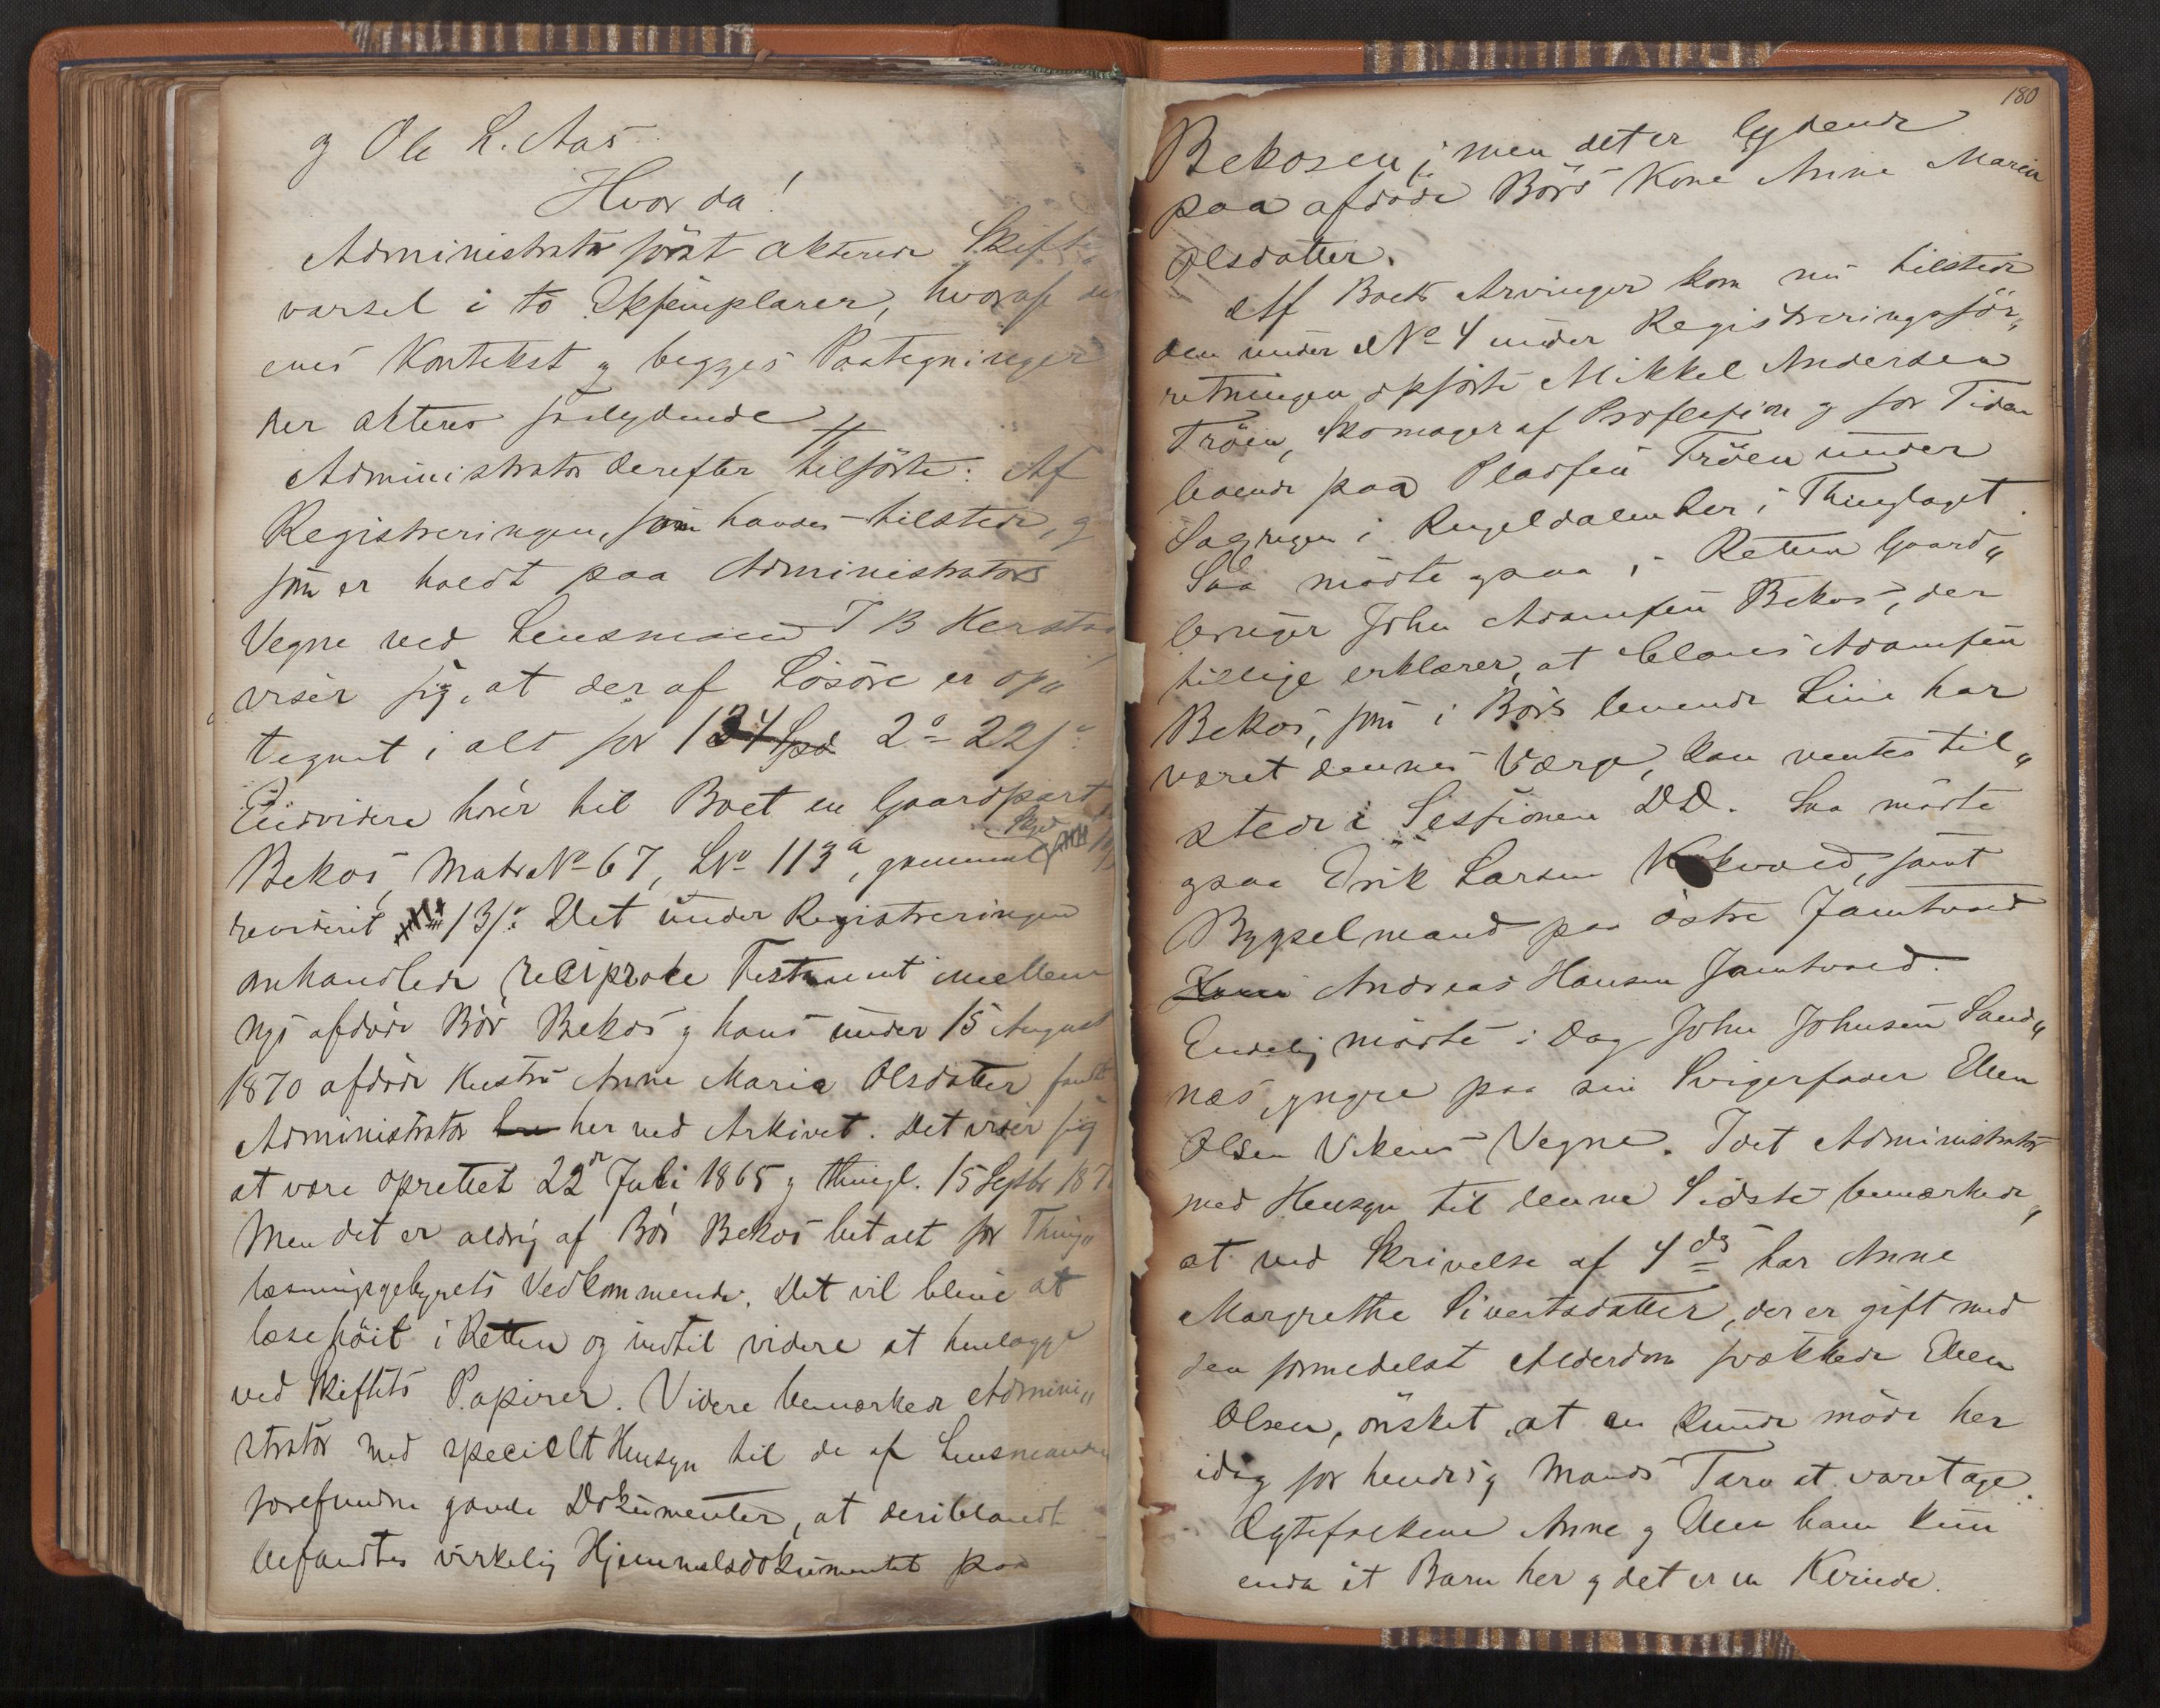 og Ole L. Aas.
Hvor da!
Administrator först akterede Skifte
varsel i to Exsemplarer, hvoraf det
enes Kontekst og begges Paategninger
her akteres saalydende
Administrator derefter tilförte: Af
Registreringen, som haves tilstede, og
som er holdt paa Administrators
Vegne ved Lensmand J B Kerstad
viser sig, at der af Lösöre er op„
tegnet i alt for 134 Spd 2 o 22 s.
Endvidere hörer til Boet en Gaardpart
Bekos, Matr No 67, LNo 113a, gammel Skyld
revideret 13 s. Det under Registreringen
omhandlede reciproke Testament imellem
nys afdöde Bör Bekos og hans under 15 August
1870 afdöde Hustru Anne Maria Olsdatter fandt
Administrator her ved Arkivet. Det viser sig
at være oprettet 22de Juli 1865 og thingl. 15 Septbr 187
Men det er aldrig af Bör Bekos betalt for Thing„
læsningsgebyrets Vedkommende. Det vil blive at
læse höit i Retten og indtil videre at henlægge
ved Skiftets Papirer. Videre bemærkede Admini„
strator med specielt Hensyn til de af Lensmanden
forefundne gamle Dokumenter, at deriblandt
befandtes virkelig Hjemmelsdokumentet paa
180
Bekosen; men det er lydende
paa afdöde Börs Kone Anne Maria
Olsdatter.
Af Boets Arvinger kom nu tilstede
den under No 4 under Registreringsfor„
retningen opförte Mikkel Andersen
Tröen, Skomager af Profession og for Tiden
boende paa Pladsen Tröen under
i Engeldalen her i Thinglaget.
Saa mödte ogsaa i Retten Gaard„
bruger John Adamsen Bekos, der
tillige erklærer, at Claus Adamsen
Bekos, som i Börs levende Live har
været dennes Værge, kan ventes til„
stede i Sessionen DD. Saa mödte
ogsaa Erik Larsen Kokvold, samt
Bygselmand paa östre Jamtvold
Andreas Hansen Jamtvold.
Endelig mödte i Dag John Johnsen Sand„
næs, yngre paa sin Svigerfader Ellen
Olsen Vikens Vegne. Idet Administrator
med Hensyn til denne Sidste bemærkede,
at ved Skrivelse af 4 ds har Anne
Margrethe Sivertsdatter, der er gift med
den formedelst Alderdom svækkede Ellen
Olsen, önsket, at en kunde möde her
idag for hendes og Mands Tarv at varetage.
Ægtefolkene Anne og Ellen have kun
enda et Barn her og det er en Kvinde.